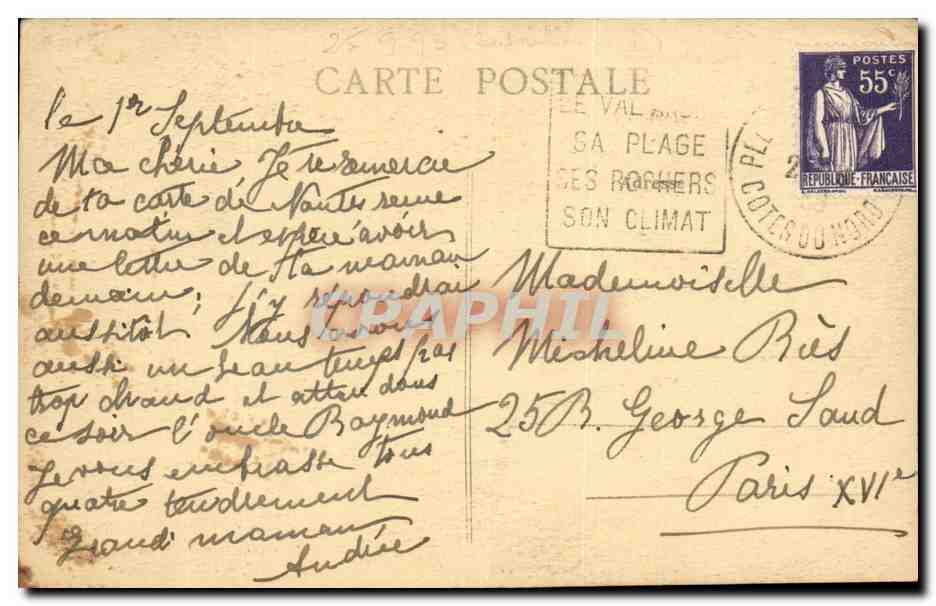 CARTE POSTALE
LE VAL
SA PLAGE
SES ROCHERS
SON CLIMAT
POSTES
55c
REPUBLIQUE-FRANÇAISE
COTES DU NORD
le 1er Septembre
Ma chérie, Je te remercie
de ta carte de Nantes reçue
ce matin et espère avoir
une lettre de ta maman
demain; j'y répondrai
aussitôt. Nous avons
aussi un beau temps pas
trop chaud et attendons
ce soir l'oncle Raymond
Je vous embrasse tous
quatre tendrement
Grand maman
Andrée
Mademoiselle
Micheline Riès
25 B. George Sand
Paris XVIe
CPAPHIL